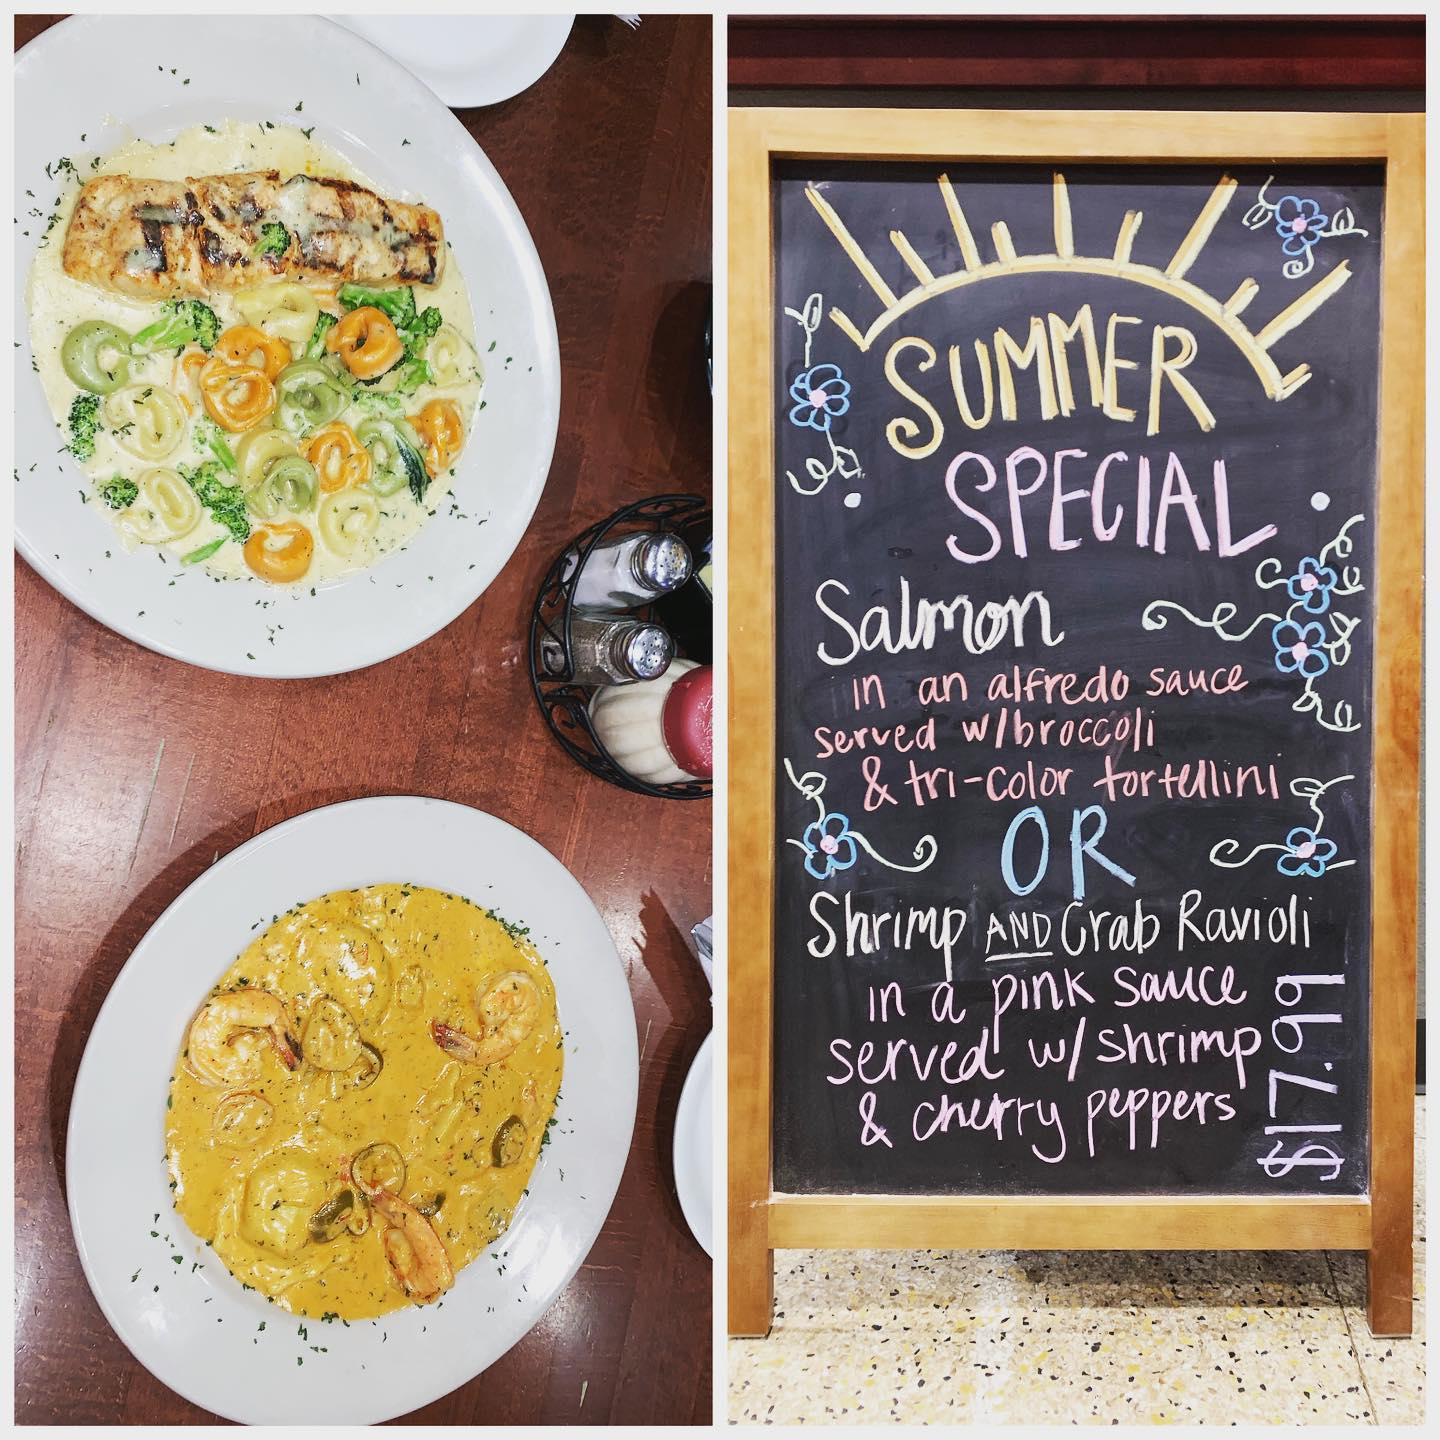 SUMMER
SPECIAL
Salmon
in an alfredo sauce
served w/broccoli
& tri-color tortellini
OR
Shrimp AND Crab Ravioli
in a pink sauce
served w/ shrimp
& cherry peppers
$17.99